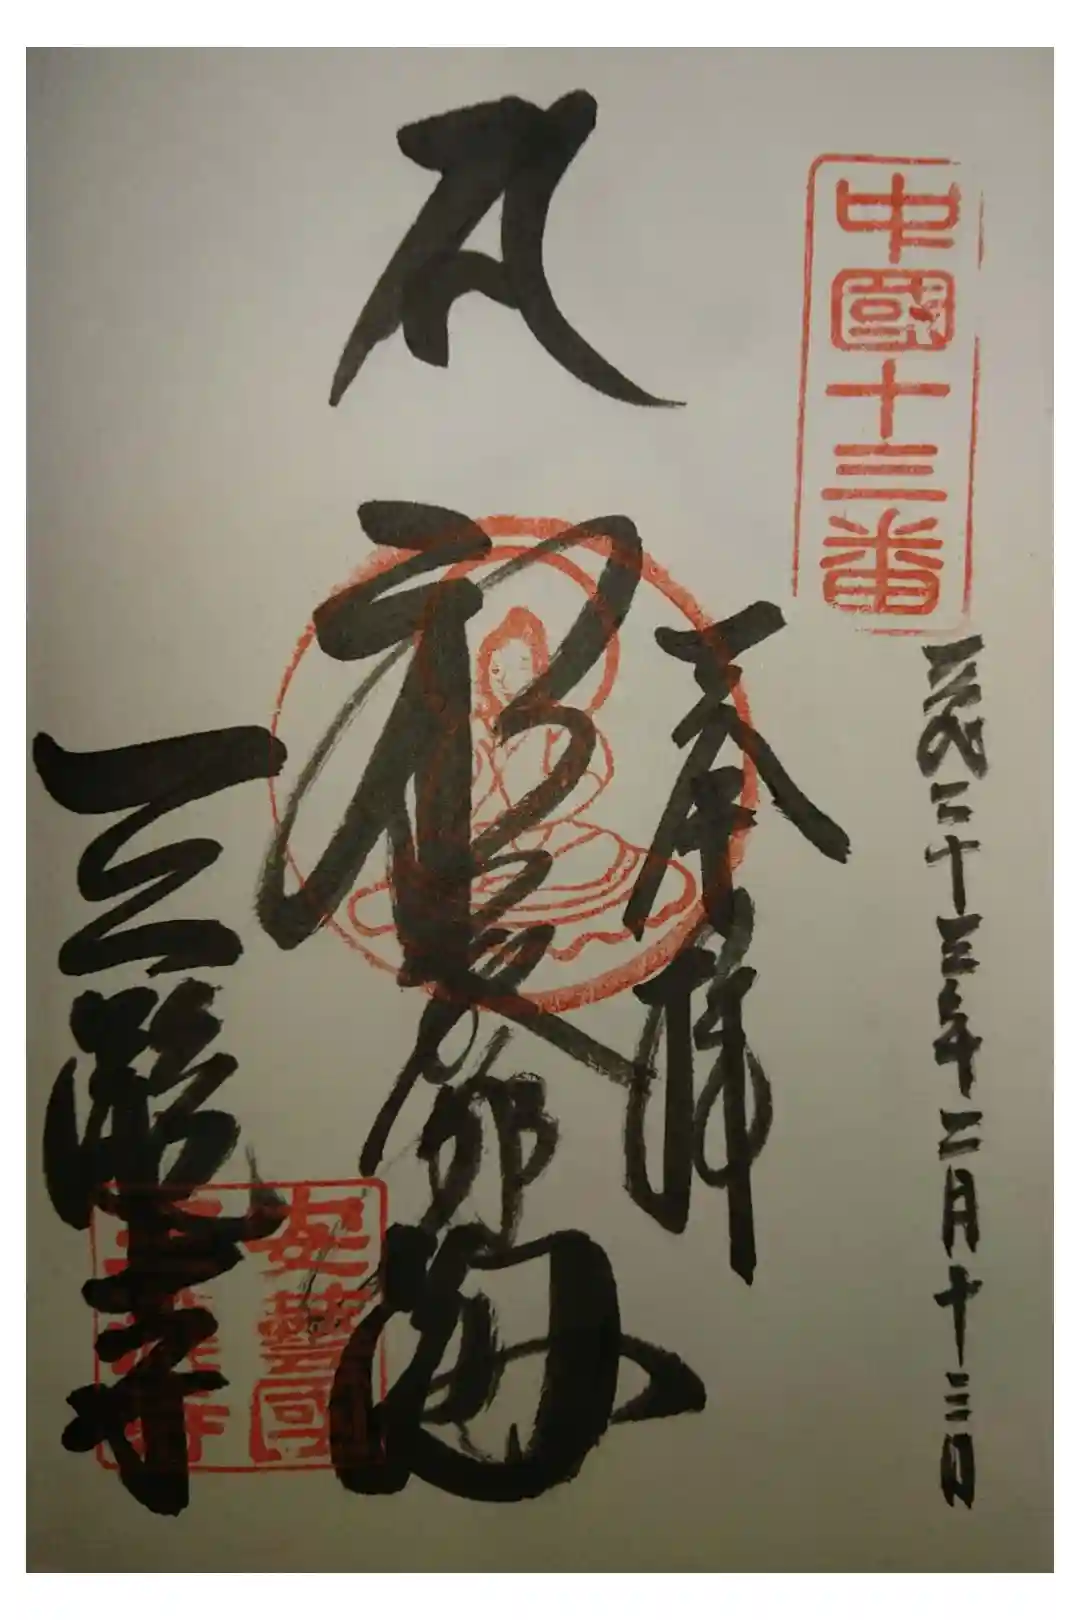 中國十三番
平成二十三年二月十三日
奉拝
𑖭
福聚海
三瀧寺
安藝國
三瀧寺